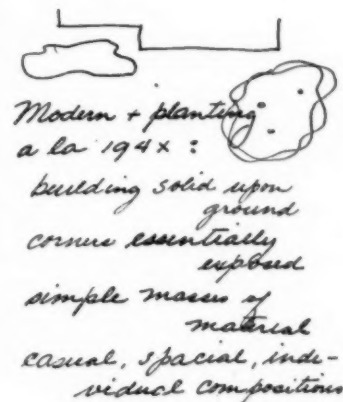 Modern + planting
a la 194x :
building solid upon
ground
corners essentially
exposed
simple masses of
material
casual, spacial, indi-
vidual compositions